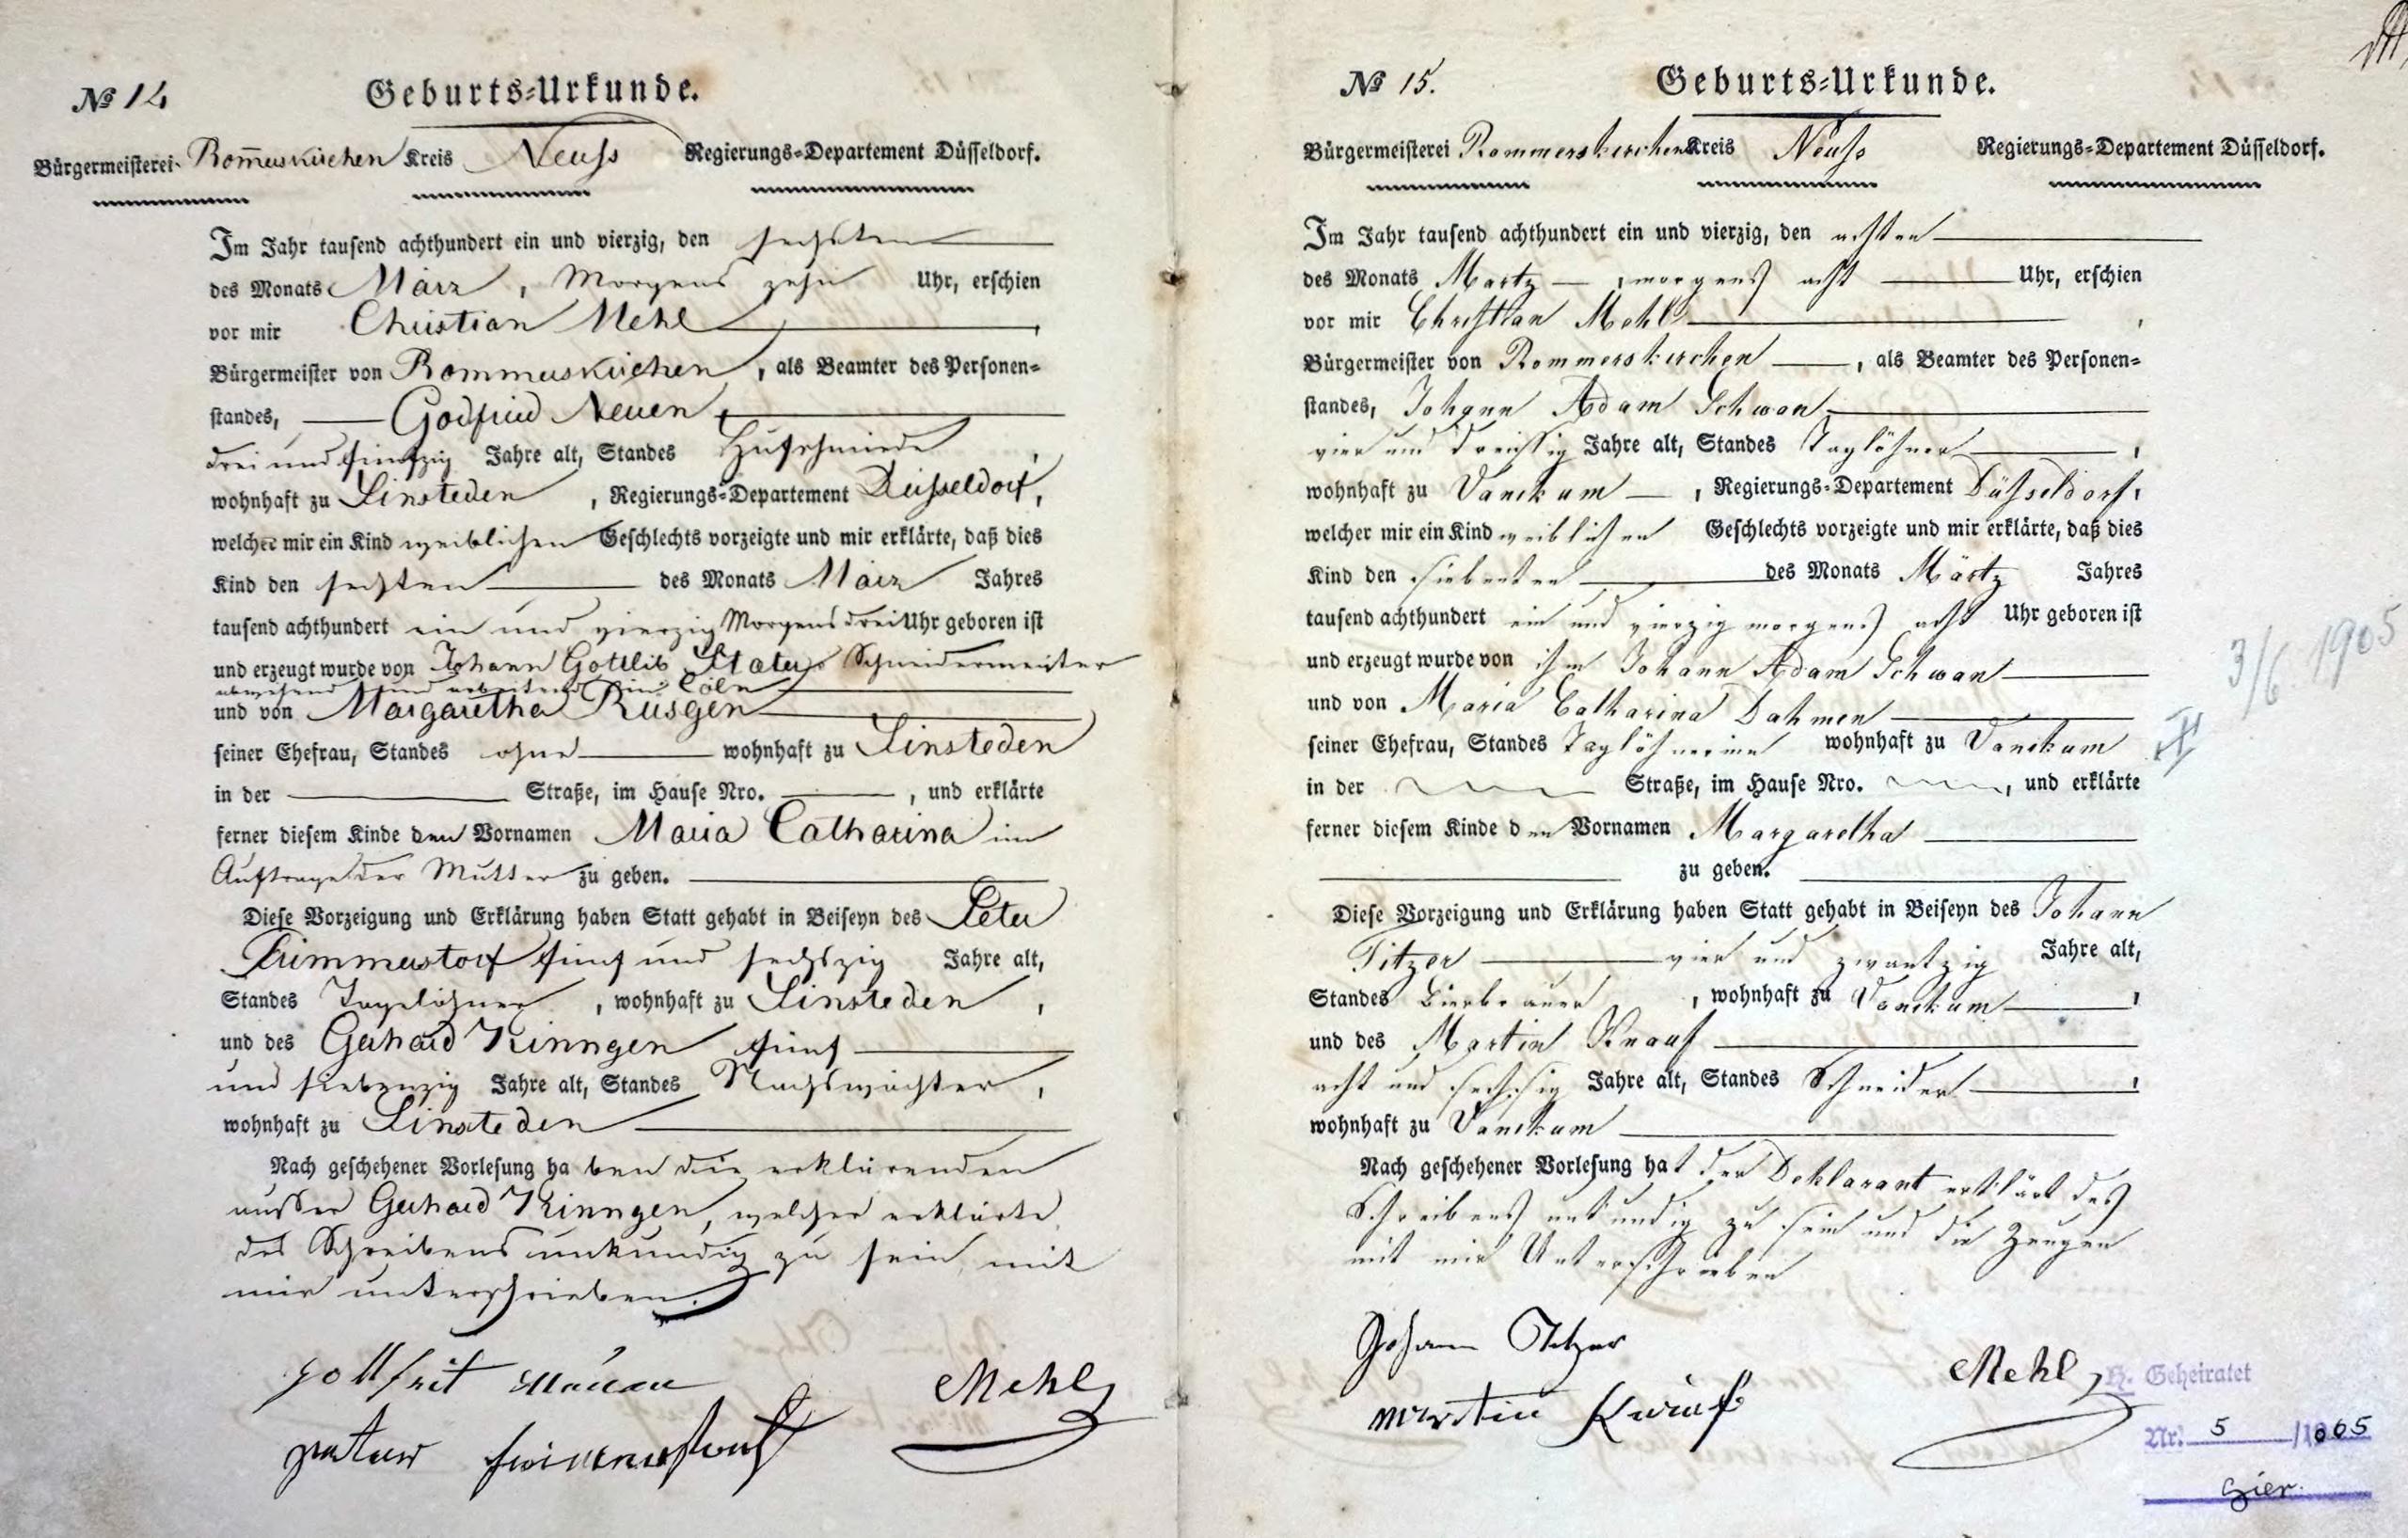 № 14
Geburts-Urkunde.
Bürgermeisterei Rom̅erskirchen Kreis Neuss Regierungs-Departement Düsseldorf.
Im Jahr tausend achthundert ein und vierzig, den sechsten
des Monats März, Morgens zehn Uhr, erschien
vor mir Christian Mehl,
Bürgermeister von Rommerskirchen, als Beamter des Personen-
standes, Godfried Neuen
drei und fünfzig Jahre alt, Standes Hufschmiede,
wohnhaft zu Sinsteden, Regierungs-Departement Düsseldorf,
welcher mir ein Kind weiblichen Geschlechts vorzeigte und mir erklärte, daß dies
Kind den sechsten des Monats März Jahres
tausend achthundert ein und vierzig Morgens drei Uhr geboren ist
und erzeugt wurde von Johann Gottlib Schneidermeister
abwesend und arbeitend in Cöln
und von Margaretha Rüsgen
seiner Ehefrau, Standes ohne wohnhaft zu Sinsteden
in der Straße, im Hause Nro. , und erklärte
ferner diesem Kinde den Vornamen Maria Catharina im
Auftrage der Mutter zu geben.
Diese Vorzeigung und Erklärung haben Statt gehabt in Beiseyn des Peter
Frimmerstorf fünf und sechszig Jahre alt,
Standes Tagelöhner, wohnhaft zu Sinsteden,
und des Gerhard Rinngen fünf
und siebenzig Jahre alt, Standes Nachtswächter,
wohnhaft zu Sinsteden
Nach geschehener Vorlesung haben die erklärenden
ausser Gerhard Rinngen, welcher erklärte
des Schreibens unkundig zu sein, mit
mir unterschrieben.
Mehl
№ 15.
Geburts-Urkunde.
Bürgermeisterei Rommerskirchen Kreis Neuss Regierungs-Departement Düsseldorf.
Im Jahr tausend achthundert ein und vierzig, den achten
des Monats Martz, morgens acht Uhr, erschien
vor mir Christian Mehl,
Bürgermeister von Rommerskirchen, als Beamter des Personen-
standes, Johann Adam Schwan
vier und dreissig Jahre alt, Standes Taglöhner,
wohnhaft zu Vanikum, Regierungs-Departement Düsseldorf,
welcher mir ein Kind weiblichen Geschlechts vorzeigte und mir erklärte, daß dies
Kind den siebenten des Monats Märtz Jahres
tausend achthundert ein und vierzig morgens acht Uhr geboren ist
und erzeugt wurde von ihm Johann Adam Schwan
und von Maria Catharina Dahmen
seiner Ehefrau, Standes Taglöhnerinn wohnhaft zu Vanikum
in der Straße, im Hause Nro. , und erklärte
ferner diesem Kinde den Vornamen Margaretha
zu geben.
Diese Vorzeigung und Erklärung haben Statt gehabt in Beiseyn des Johann
Titzer vier und zwantzig Jahre alt,
Standes Bierbrauer, wohnhaft zu Vanikum,
und des Martin Knauf
acht und sechsig Jahre alt, Standes Schneider,
wohnhaft zu Vanikum
Nach geschehener Vorlesung hat der Deklarant erklärt des
Schreibens unkundig zu sein und die Zeugen
mit mir Unterschrieben
Johann Titzer
Martin Knauf
Mehl
3/6. 1905
H. Geheiratet
Nr. 5 /1865
hier.